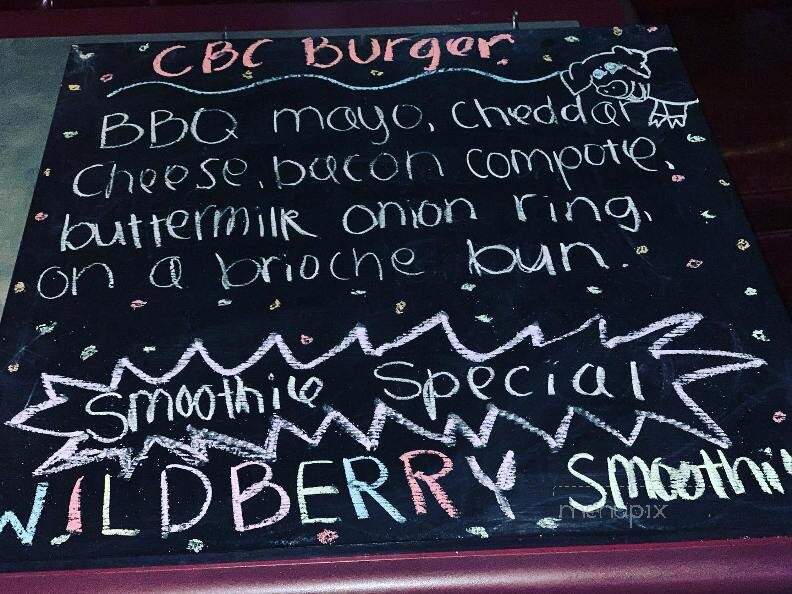 CBC Burger
BBQ mayo, cheddar
cheese, bacon compote,
buttermilk onion ring,
on a brioche bun.
Smoothie Special
WILDBERRY Smoothi
menupix